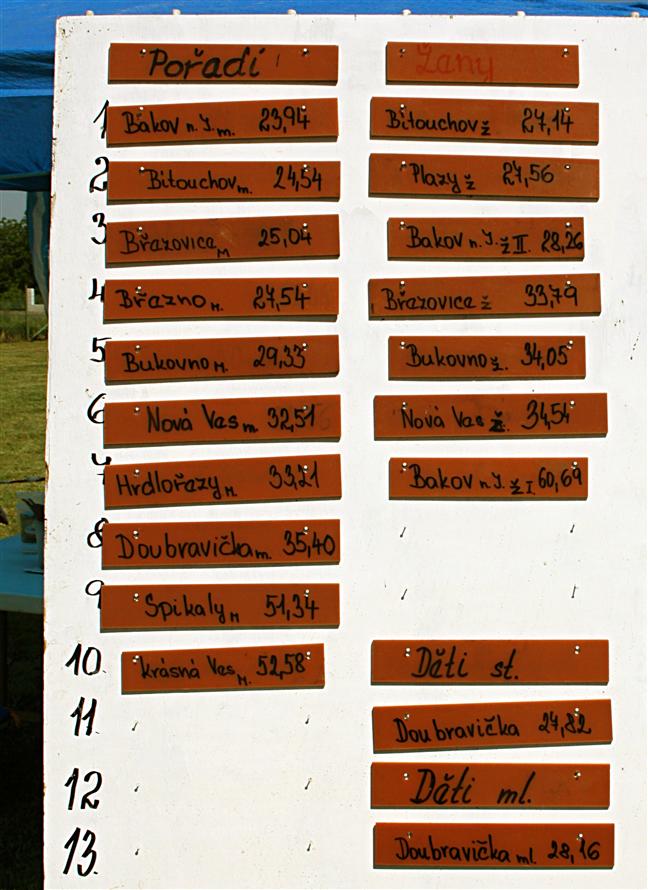 Pořadí Ženy
1 Bakov n.J. m. 23,94 Bítouchov ž 27,14
2 Bítouchov m. 24,54 Plazy ž 27,56
3 Březovice M 25,04 Bakov n.J. ž II. 28,26
4 Březno M. 27,54 Březovice ž 33,79
5 Bukovno M. 29,33 Bukovno ž. 34,05
6 Nová Ves m. 32,51 Nová Ves ž. 34,54
7 Hrdlořezy M. 33,21 Bakov n.J. ž I 60,69
8 Doubravička m. 35,40
9 Spikaly M 51,34
10 Krásná Ves M. 52,58 Děti st.
11 Doubravička 27,82
12 Děti ml.
13 Doubravička ml. 28,16